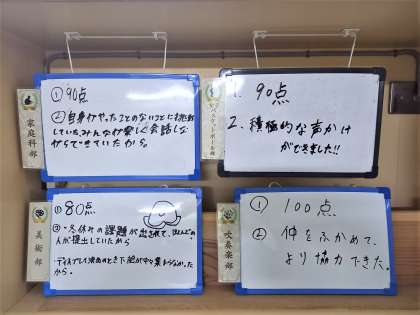 家庭科部
①90点
②自身がやったことのないことに挑戦
していた。みんなが楽しく会話しな
がらできていたから。
バスケットボール部
1. 90点
2. 積極的な声かけ
ができました!!
美術部
① 80点
②・冬休みの課題が出されて、ほとんどの
人が提出していたから
・ディスプレイ決めのとき下絵がやり
から。
吹奏楽部
① 100点
② 仲をふかめて、
より協力できた。